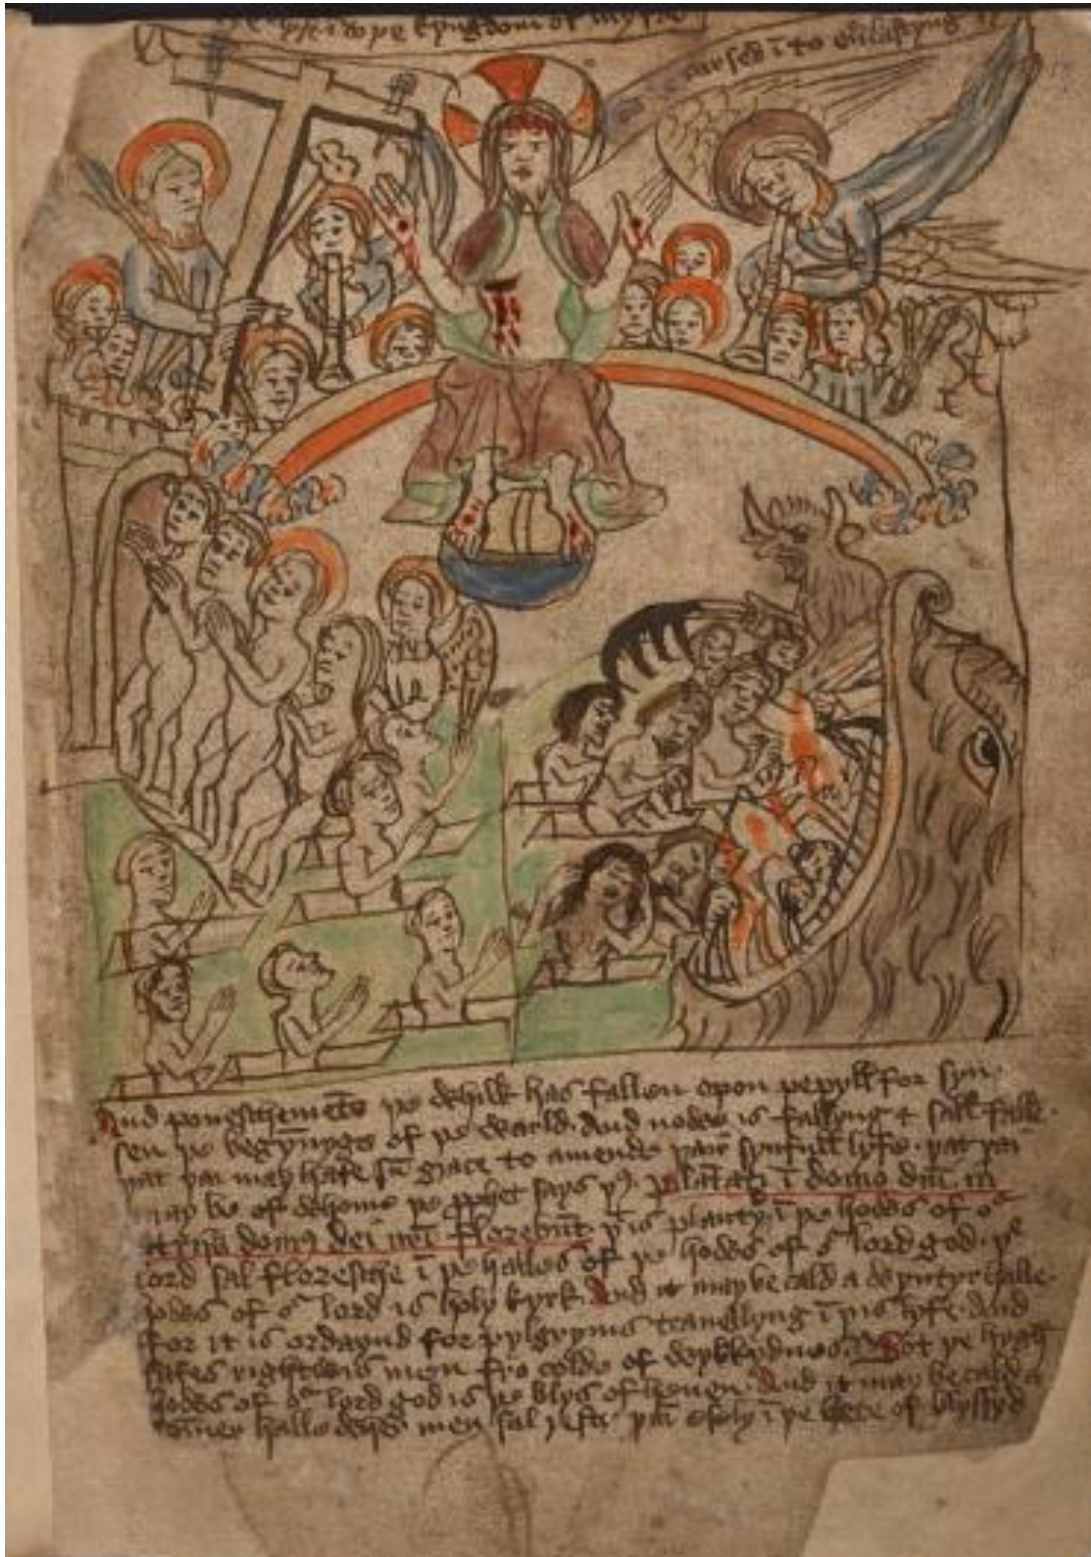 kyngdom of my
cursed ī to euerlastyng
And poneschements þe whilk has fallen opon pepyll for syn
sen þe begynnyge of þe warld. And nowe is fallyng & sall falle.
þat þai may hafe grace to amende þair synfull lyfe. þat þai
may be of whome þe says Plātati ī domo dnī. in
atrijs domꝰ dei nrī florebūt þt is planty ī þe howse of oͬ
lord sal floresche ī þe halles of þe howse of oͬ lord god. þe
howse of oͬ lord is holy kyrk. And it may be cald a wyntyr halle.
for it is ordaynd for pylgryms trauellyng ī þis lyfe. And
safes rightwis men fro colde of wykkydnes. Bot þe
howse of oͬ lord god is þe blys of heuen. And it may be cald a
somer halle men sal ī þe hete of blyssyd